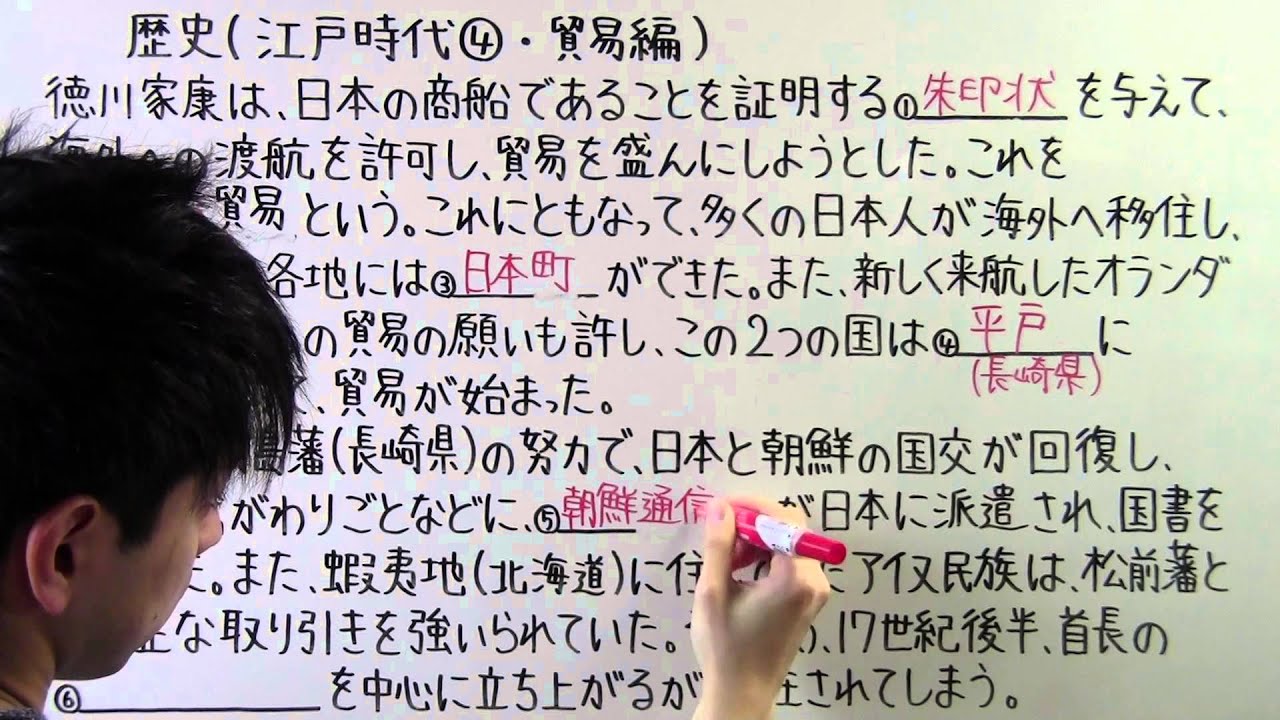 歴史(江戸時代④・貿易編)
徳川家康は、日本の商船であることを証明する①朱印状を与えて、
海外への渡航を許可し、貿易を盛んにしようとした。これを
貿易という。これにともなって、多くの日本人が海外へ移住し、
各地には③日本町ができた。また、新しく来航したオランダ
の貿易の願いも許し、この2つの国は④平戸に
(長崎県)
、貿易が始まった。
藩(長崎県)の努力で、日本と朝鮮の国交が回復し、
がわりごとなどに、⑤朝鮮通信が日本に派遣され、国書を
た。また、蝦夷地(北海道)に住たアイヌ民族は、松前藩と
な取り引きを強いられていた。、17世紀後半、首長の
⑥を中心に立ち上がるがされてしまう。